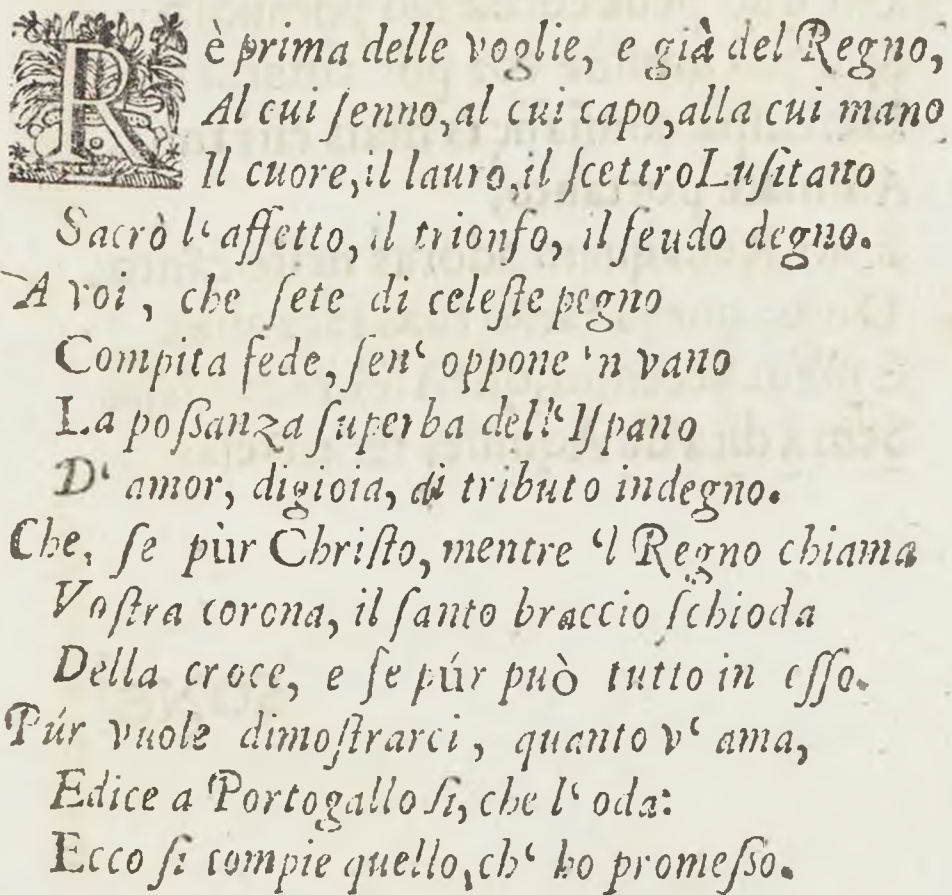 Rè prima delle voglie, e già del Regno,
Al cui ſenno, al cui capo, alla cui mano
Il cuore, il lauro, il ſcettro Luſitano
Sacrò l‘ affetto, il trionfo, il feudo degno.
A voi, che ſete di celeſte pegno
Compita fede, ſen‘ oppone ‘n vano
La poſſanza ſuperba dell‘ Iſpano
D‘ amor, digioia, di tributo indegno.
Che, ſe pùr Chriſto, mentre ‘l Regno chiama
Voſtra corona, il ſanto braccio ſchioda
Della croce, e ſe púr può tutto in eſſo.
Púr vuole dimoſtrarci, quanto v‘ ama,
Edice a Portogallo ſi, che l‘ oda:
Ecco ſi compie quello, ch‘ ho promeſſo.